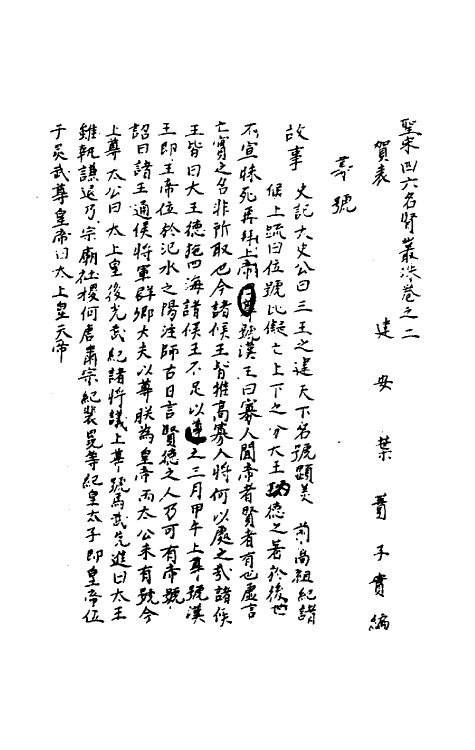 聖宋四六名賢叢珠卷之二
建安葉蕡子實編
賀表
尊號
故事 史記太史公曰三王之建天下名號顯美 前高祖紀諸
侯上疏曰位號比儗亡上下之分大王功德之著於後世
不宣昧死再拜上帝尊號漢王曰寡人聞帝者賢者有也虛言
亡實之名非所取也今諸侯王皆推高寡人將何以處之哉諸侯
王皆曰大王德施四海諸侯王不足以道之三月甲午上尊號漢
王即王帝位於汜水之陽注師古曰言賢德之人乃可有帝號
詔曰諸王通侯將軍群卿大夫以尊朕為皇帝而太公未有號今
上尊太公曰太上皇後光武紀諸將議上尊號馬武先進曰大王
雖執謙退乃宗廟社稷何唐肅宗紀裴冕等紀皇太子即皇帝位
于灵武尊皇帝曰太上皇天帝